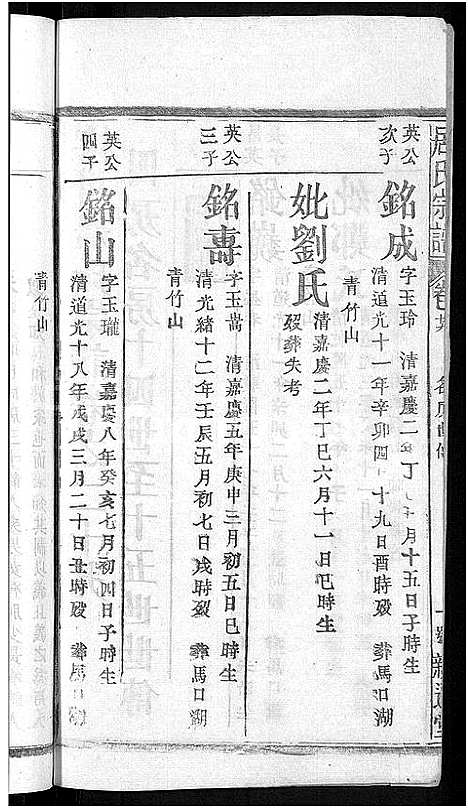 氏宗譜
英公次子
銘成
字玉玲 清嘉慶二 丁 月十五日子時生
清道光十一年辛卯四 十九日酉時殁 葬馬口湖
青竹山
妣劉氏
清嘉慶二年丁巳六月十一日巳時生
殁葬失考
英公三子
銘壽
字玉嵩 清嘉慶五年庚申三月初五日巳時生
清光緒十二年壬辰五月初七日戌時殁 葬馬口湖
青竹山
英公四子
銘山
字玉瓏 清嘉慶八年癸亥七月初四日子時生
清道光十八年戊戌三月二十日丑時殁 葬馬口湖
青竹山